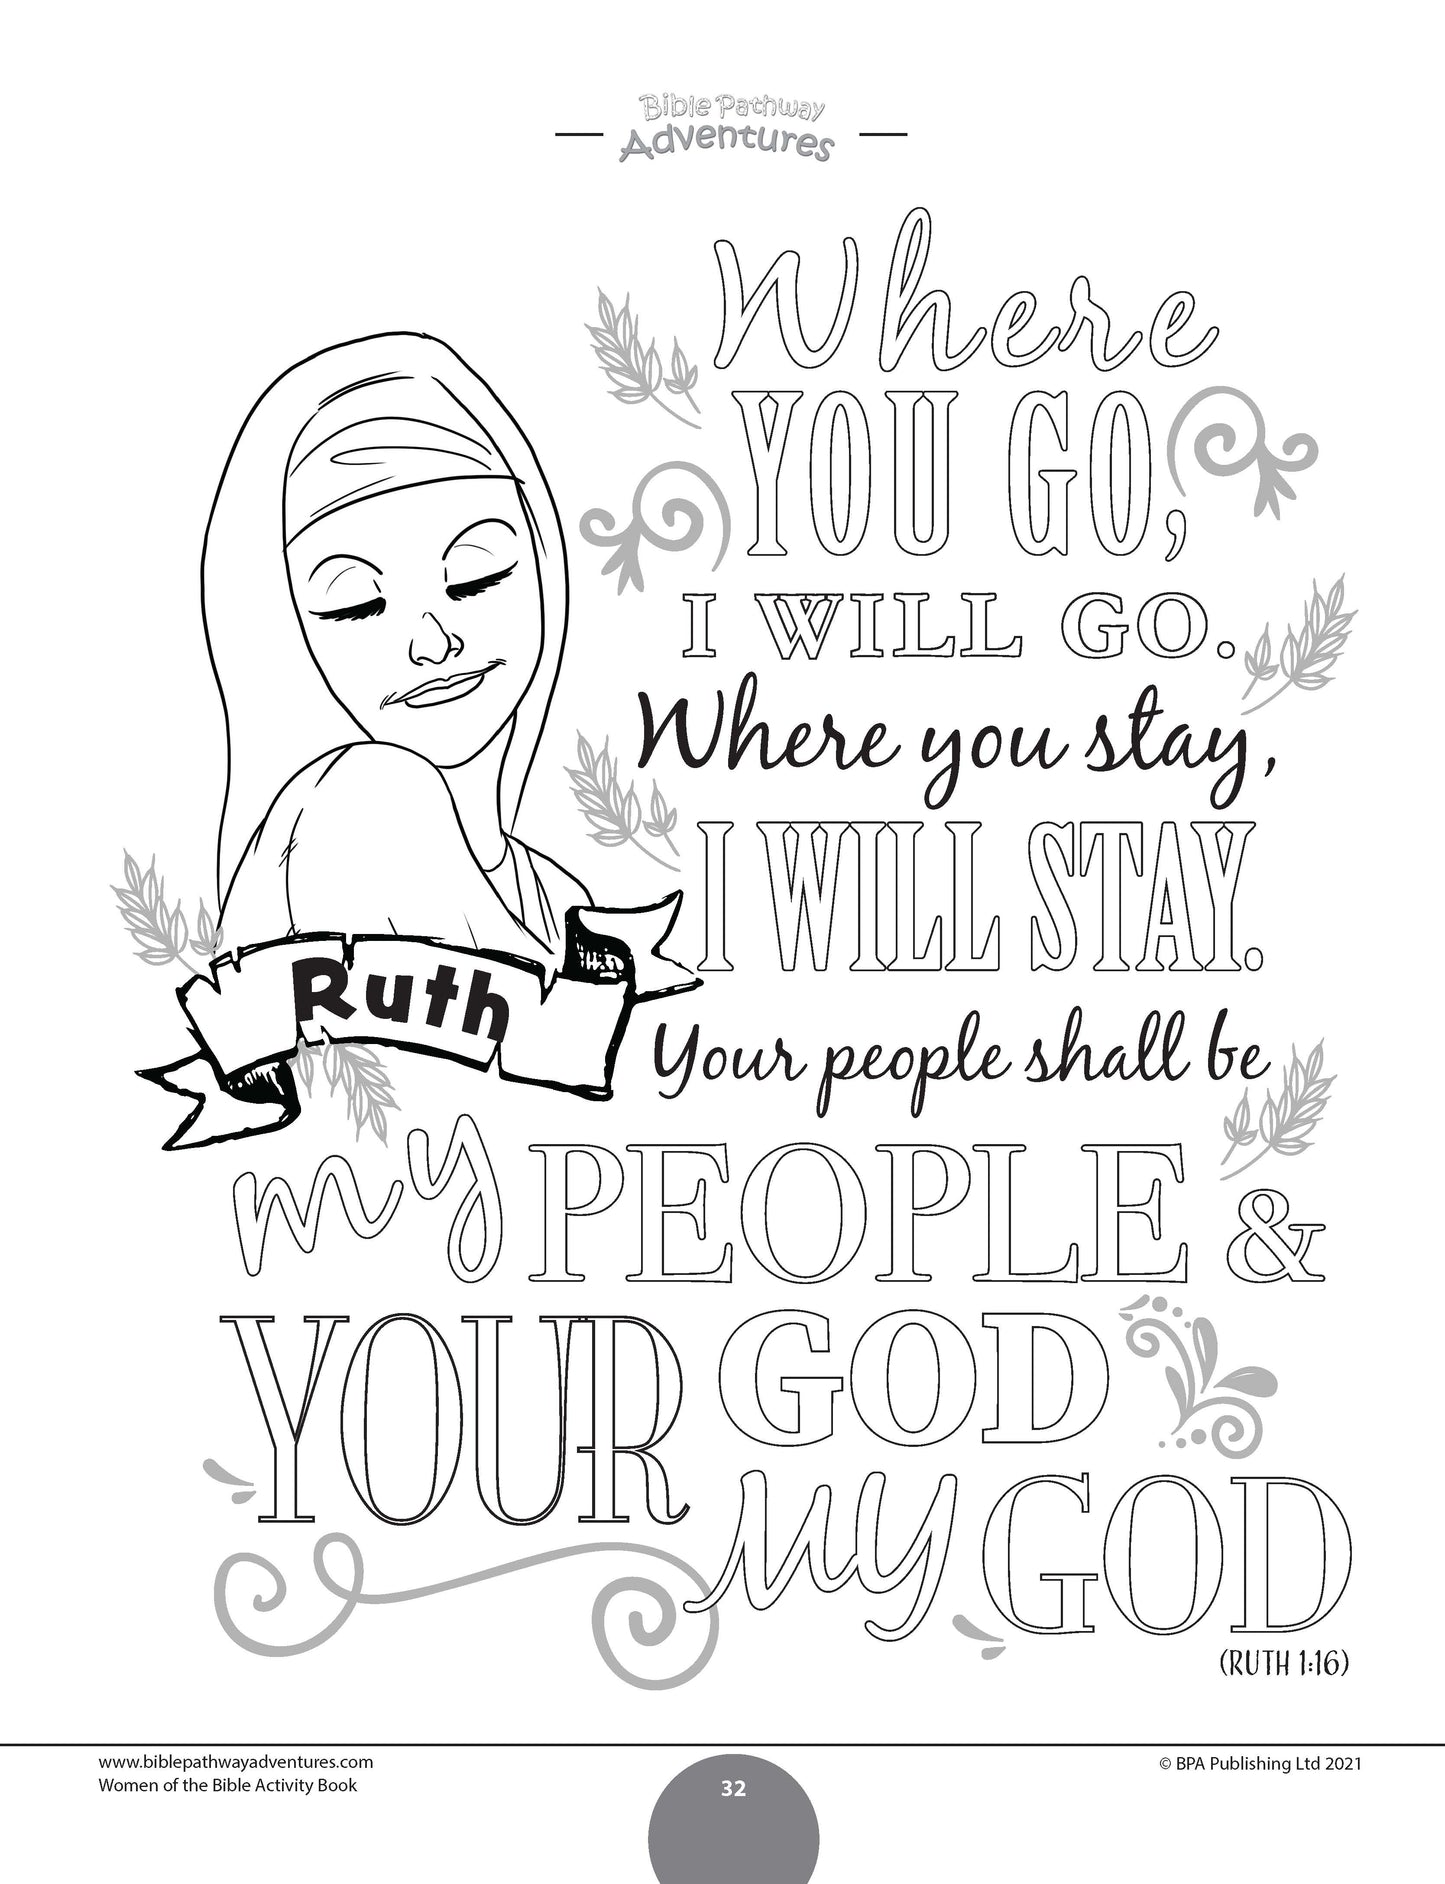 Bible Pathway
Adventures
Where
YOU GO,
I WILL GO.
Where you stay,
I WILL STAY.
Ruth
Your people shall be
my PEOPLE &
YOUR GOD
My GOD
(RUTH 1:16)
www.biblepathwayadventures.com
Women of the Bible Activity Book
© BPA Publishing Ltd 2021
32